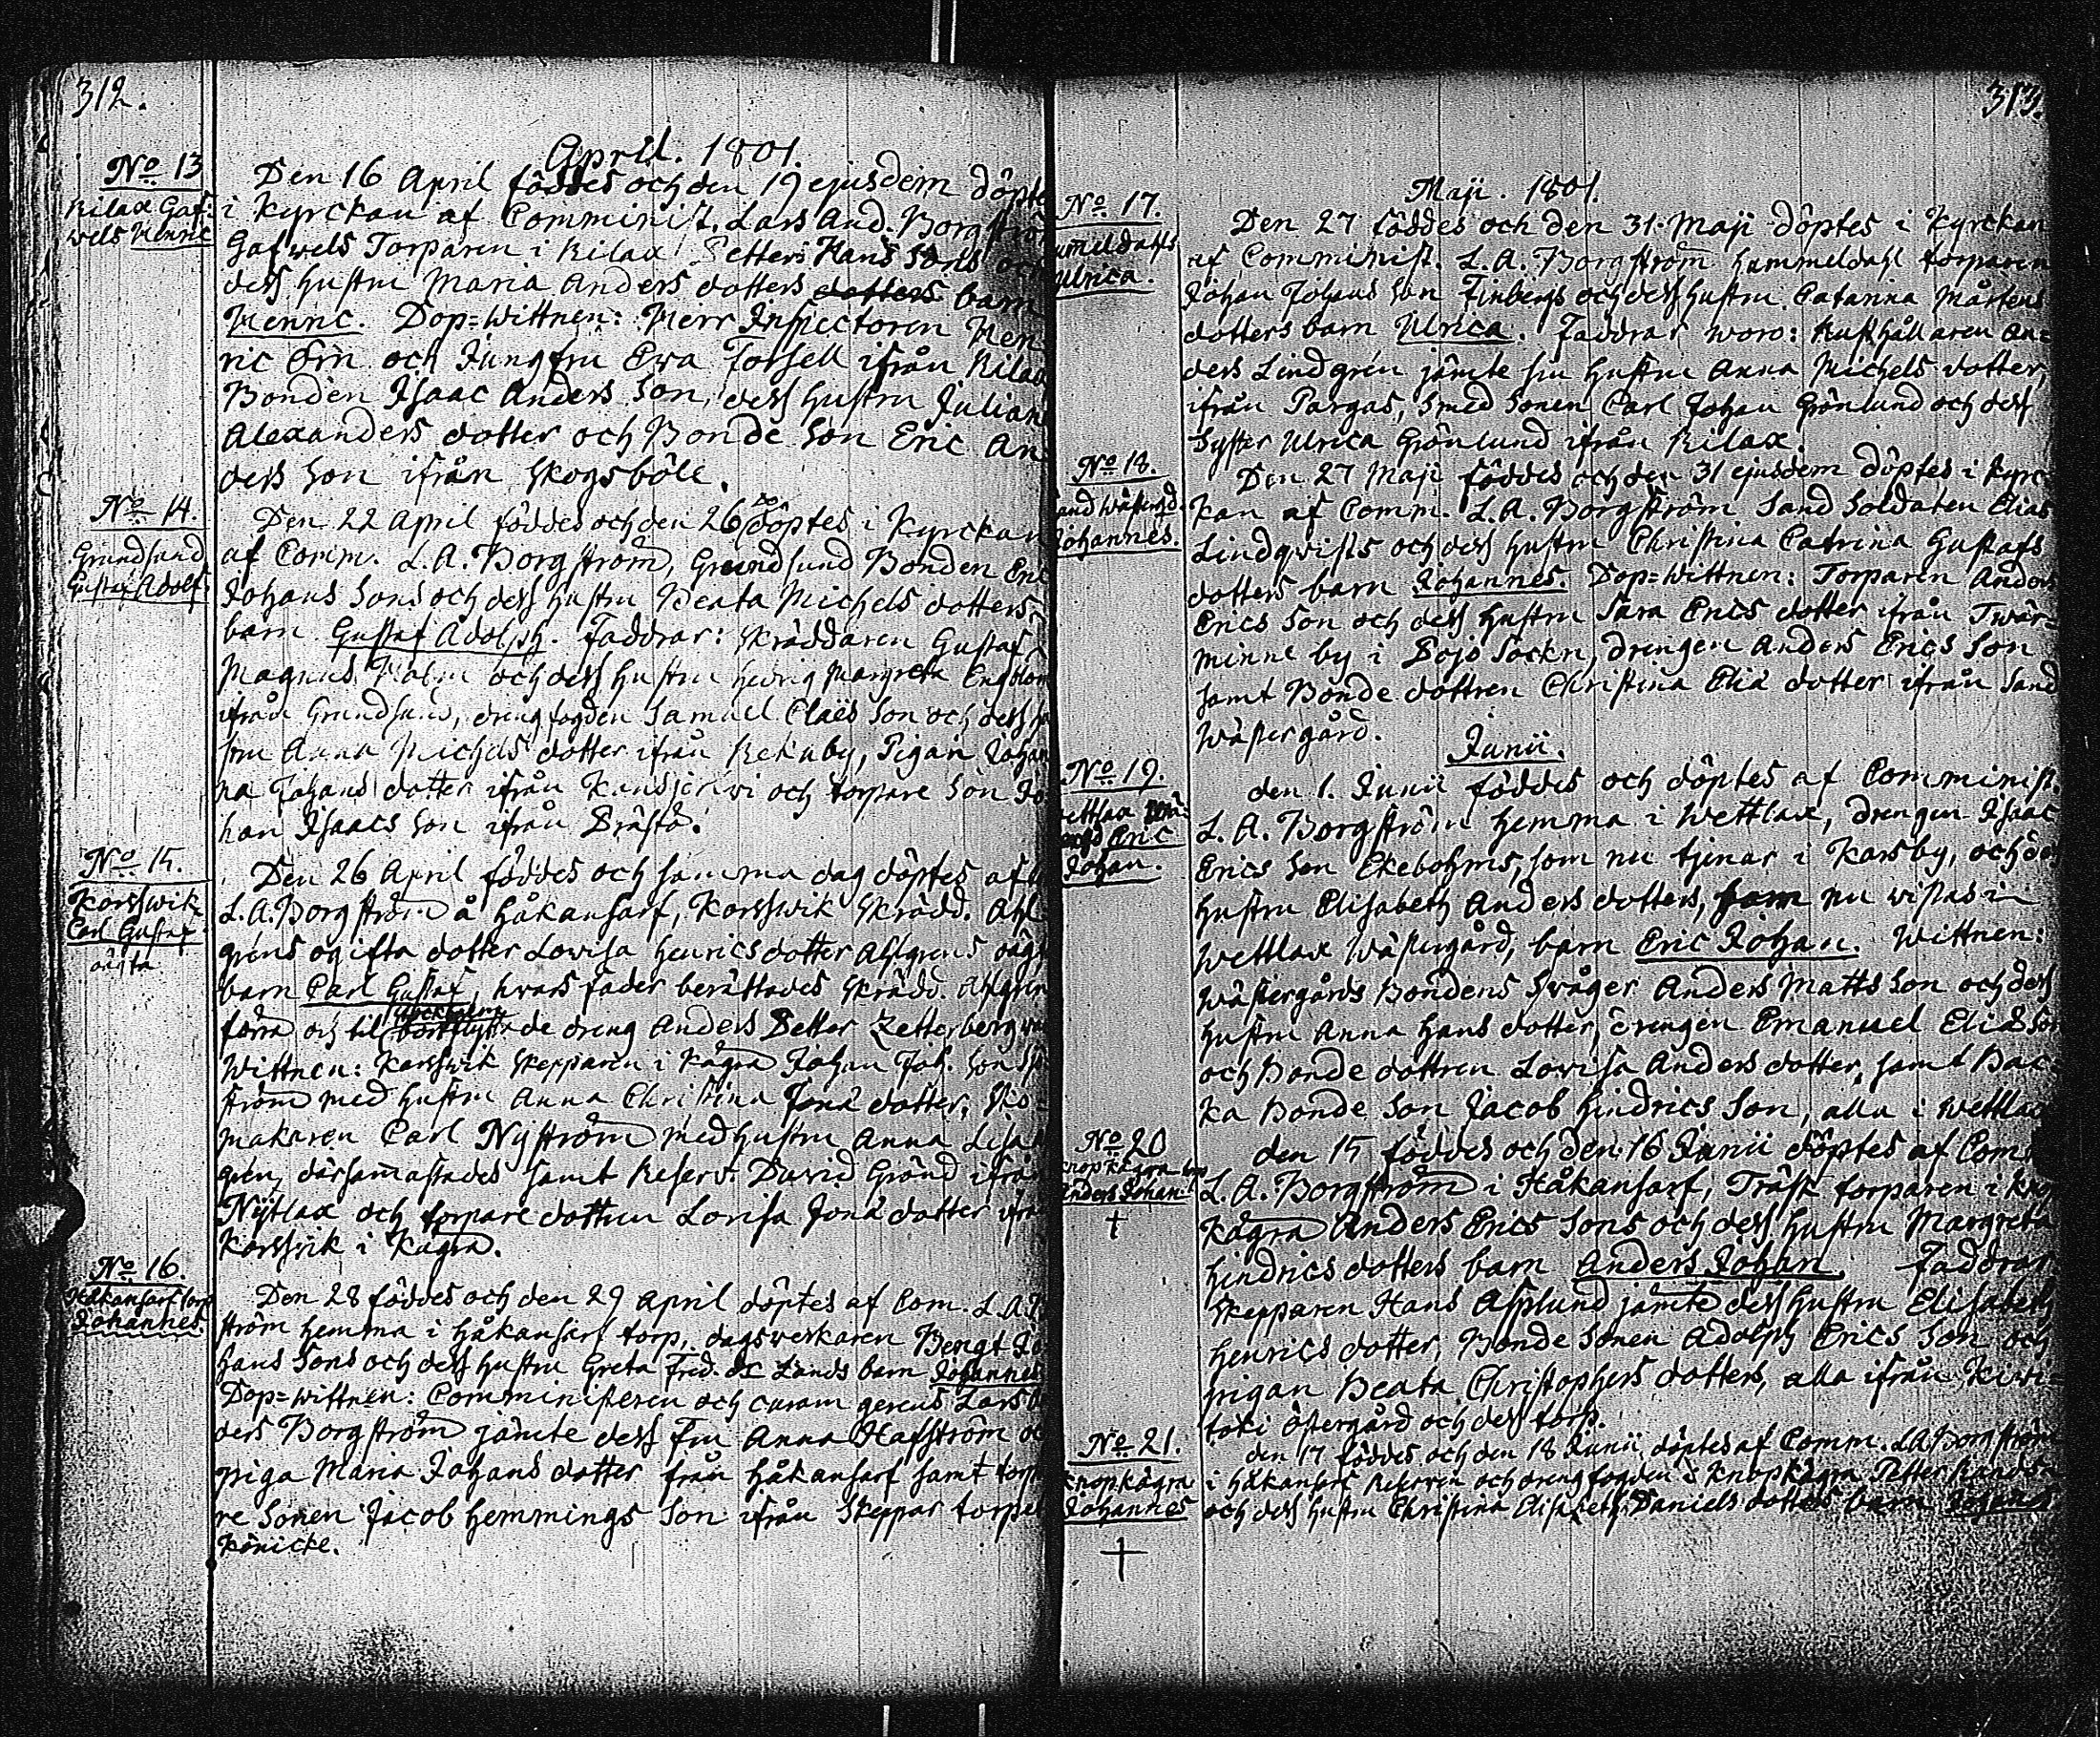 312.
April. 1801.
No 13
Rilax Gaf:
wels Henric
Den 16 April föddes och den 19 ejusdem döpte
i Kyrckan af Comminist. Lars And. Borgströ
Gafwels Torparen i Rilax Petters Hans Sons och
dess hustru Maria Anders dotters dotters barn
Henric. Dop=Wittnen: Herr Inspectoren Hen
ric Örn och Jungfru Ewa Forsell ifrån Rilax
Bonden Isaac Anders Son, dess hustru Julian
Alexanders dotter och Bonde Son Eric An
ders Son ifrån Skogsböle.
No 14.
Grundsund
Gustaf Adolf.
Den 22 April föddes och den 26 döptes i Kyrckan
af Comm. L. A. Borgström, Grundsund Bonden Eric
Johans Sons och dess hustru Beata Michels dotters
barn Gustaf Adolph. Faddrar: Skräddaren Gustaf
Magnus Malm och dess hustru Hedvig Margreta Engblom
ifrån Grundsund, drengfogden Samuel Claës Son och dess hu
stru Anna Michels dotter ifrån Rekuby, Pigan Johan
na Johans dotter ifrån Kansjerwi och torpare Son Jo
han Isaacs Son ifrån Bråsto.
No 15.
Korsswik
Carl Gustaf
oägta
Den 26 April föddes och samma dag döptes af
L. A. Borgström å Håkansarf, Korsswik Skrädd. Ahl
gréns ogifta dotter Lovisa Henrics dotter Ahlgrens oägt
barn Carl Gustaf, hvars fader berättades Skrädd. Ahlgren
förra och til de dreng Anders Petter Zetterberg
Wittnen: Korsswik Skepparen i Kågra Johan Joh. Sons
ström med hustru Anna Christina Jona dotter, Sko
makaren Carl Nyström med hustru Anna Lisa
grén, därsammastades samt Reserv. David Grönd ifrån
Nÿtlax och torpare dottren Lovisa Jona dotter ifrå
Korssvik i Kågra.
No 16.
Håkansarf torp
Johannes.
Den 28 föddes och den 29 April döptes af Com. L. A. B
ström hemma i Håkansarf torp, dagsverkaren Bengt Jo
hans Sons och dess hustru Greta Fred. de Lands barn Johannes
Dop=wittnen: Comministeren och curam gerens Lars
ders Borgström jämte dess Fru Anna Hafström o
piga Maria Johans dotter från Håkansarf samt torpa
re Sonen Jacob Hemmings Son ifrån Skeppar torpe
Könicke.
313.
Maji. 1801.
No 17.
ummeldahls
Ulrica.
Den 27 föddes och den 31. Maji döptes i Kyrckan
af Comminist. L. A. Borgström Hummeldahl torparen
Johan Johans Son Finbergs och dess hustru Catarina Mårtens
dotters barn Ulrica. Faddrar woro: Rusthållaren An=
ders Lindgrén jämte sin hustru Anna Michels dotter,
ifrån Pargas, Smed Sonen Carl Johan Grönlund och dess
Syster Ulrica Grönlund ifrån Rilax.
No 18.
and Wästergd.
Johannes.
Den 27 Maji föddes och den 31 ejusdem döptes i Kyrc
kan af Comm. L. A. Borgström Sand Soldaten Elias
Lindqvists och dess hustru Christina Catrina Gustafs
dotters barn Johannes. Dop=Wittnen: Torparen Anders
Erics Son och dess hustru Sara Erics dotter ifrån Twär=
minne by i Pojo Sockn, drengen Anders Erics Son
samt Bonde dottren Christina Elia dotter ifrån Sand
Wästergård.
Junii.
No 19.
ettlax Wä=
Eric
Johan.
den 1. Junii föddes och döptes af Comminist.
L. A. Borgström hemma i Wettlax, drengen Isaac
Erics Son Ekebohms, som nu tjenar i Karsby, och de
hustru Elisabeth Anders dotters, som nu wistas i
Wettlax Wästergård, barn Eric Johan. Wittnen:
Wästergårds Bondens Svåger Anders Matts Son och dess
hustru Anna Hans dotter, drengen Emanuel Elia So
och Bonde dottren Lovisa Anders dotter, samt Bac
ka Bonde Son Jacob Hindrics Son, alla i Wettlax
No 20
Knopkägra
Anders Johan
†
den 15 föddes och den 16 Junii döptes af Com.
L. A. Borgström i Håkansarf, Träsk torparen i Kno
kågra Anders Erics Sons och dess hustru Margreta
Hindrics dotters barn Anders Johan. Faddrar
Skepparen Hans Asplund jämte dess hustru Elisabeth
Henrics dotter, Bonde Sonen Adolph Erics Son och
pigan Beata Christophers dotters, alla ifrån Kiwi=
toki Östergård och dess torp.
No 21.
Knopkägra
Johannes
†
den 17 föddes och den 18 Junii döptes af Comm. L. A. Borgström
i Håkansarf Reserven och drengfogden i Knopkägra Petter
och dess hustru Christina Elisabeth Daniels dotters barn Johannes